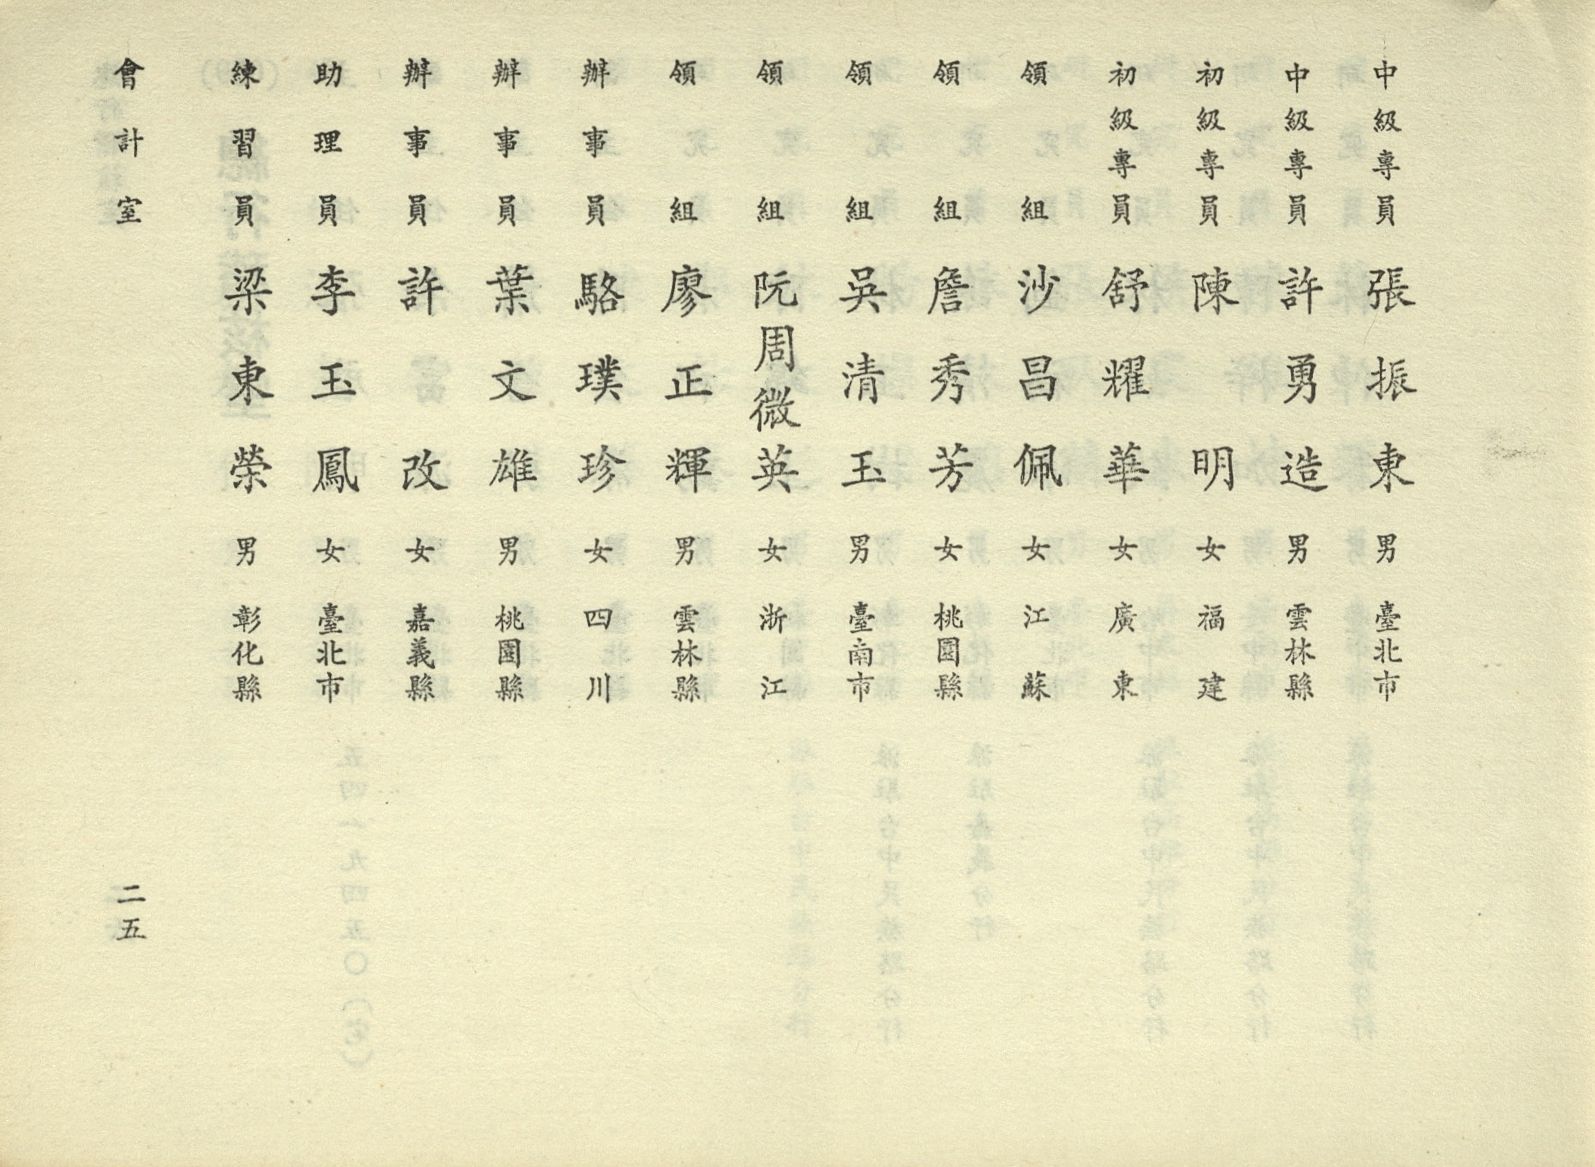 中級專員 張振東 男 臺北市
中級專員 許勇造 男 雲林縣
初級專員 陳明 女 福建
初級專員 舒耀華 女 廣東
領組 沙昌佩 女 江蘇
領組 詹秀芳 女 桃園縣
領組 吳清玉 男 臺南市
領組 阮周微英 女 浙江
領組 廖正輝 男 雲林縣
辦事員 駱璞珍 女 四川
辦事員 葉文雄 男 桃園縣
辦事員 許改 女 嘉義縣
助理員 李玉鳳 女 臺北市
練習員 梁東榮 男 彰化縣
會計室 二五